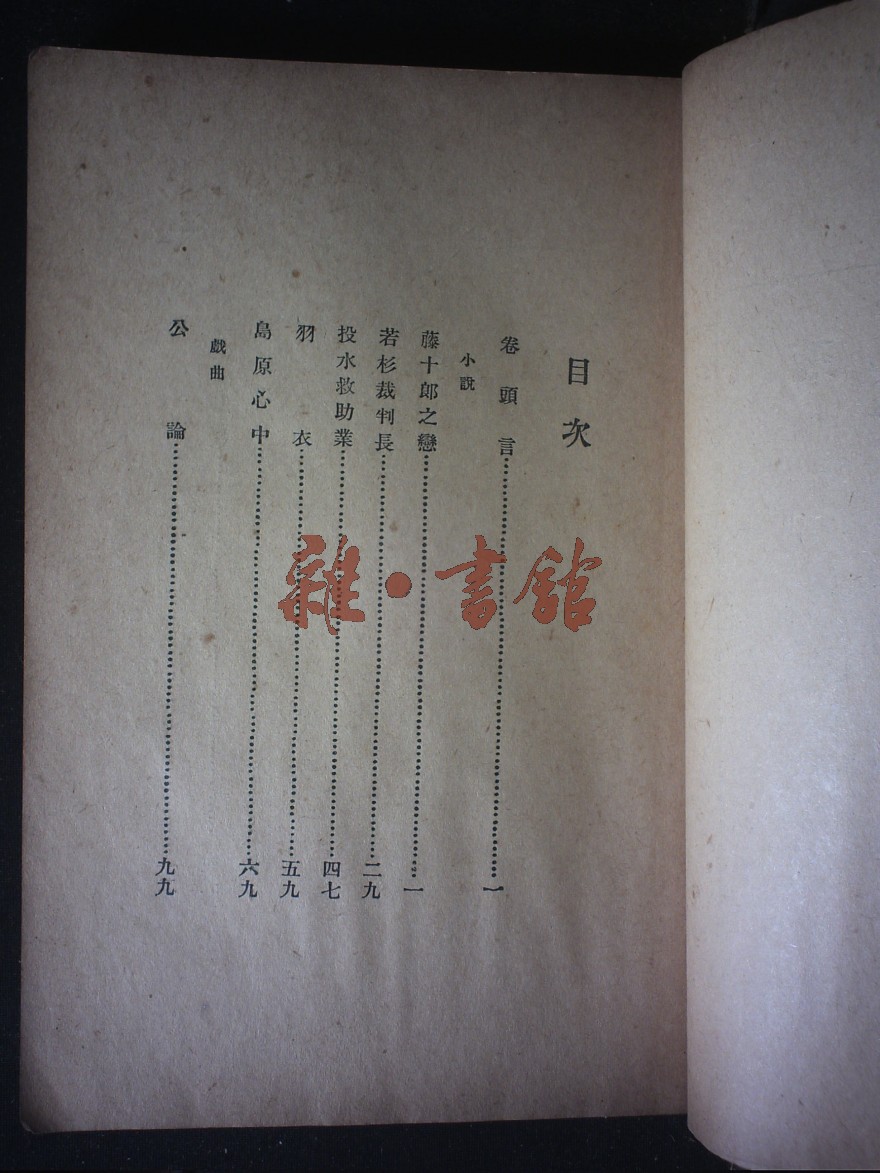 目次
卷頭言……一
小說
藤十郎之戀……一
若杉裁判長……二九
投水救助業……四七
羽衣……五九
島原心中……六九
戲曲
公論……九九
雜·書館